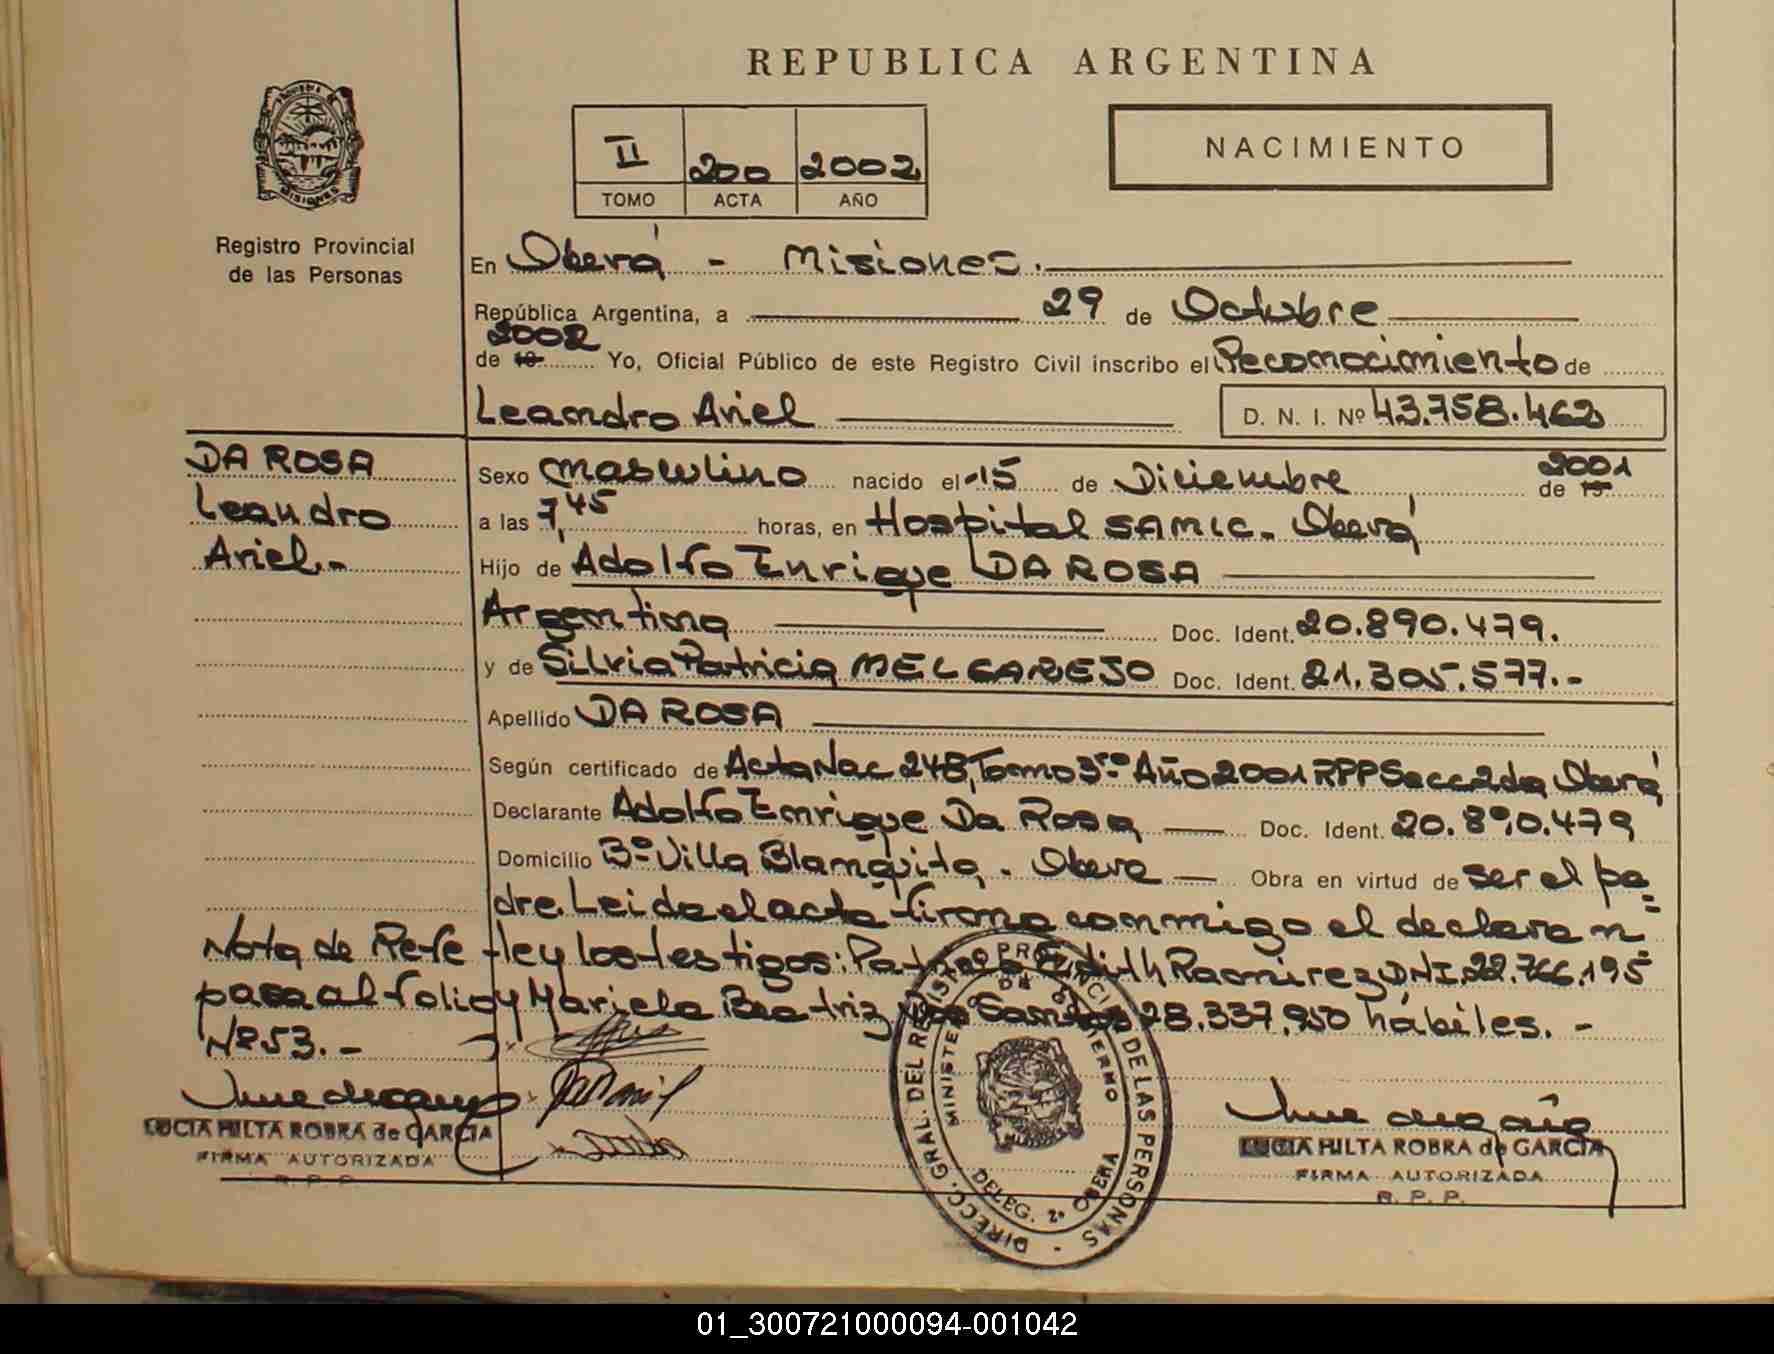 REPUBLICA ARGENTINA
II 200 2002
TOMO ACTA AÑO
NACIMIENTO
Registro Provincial
de las Personas
En Oberá - Misiones.
República Argentina, a 29 de Octubre
2002
de 19 Yo, Oficial Público de este Registro Civil inscribo el Reconocimiento de
Leandro Ariel D. N. I. Nº 43.758.462
DA ROSA
Leandro
Ariel.-
Sexo masculino nacido el -15 de Diciembre de 19 2001
a las 7,45 horas, en Hospital SAMIC. Oberá
Hijo de Adolfo Enrique DA ROSA
Argentina Doc. Ident. 20.890.479.
y de Silvia Patricia MELGAREJO Doc. Ident. 21.305.577.-
Apellido DA ROSA
Según certificado de Acta Nac 248, Tomo 3ro Año 2001 RPP Secc 2da Oberá
Declarante Adolfo Enrique Da Rosa Doc. Ident. 20.890.479
Domicilio Bº Villa Blanquita. Obera Obra en virtud de ser el pa=
dre. Leida el acta firma conmigo el declaran
te y los testigos: Edith Ramirez DNI 22.766.195
y Mariela Beatriz Dos Santos 28.337.950 hábiles. -
Nota de Refe
pasa al folio
Nº 53. -
LUCIA HILTA ROBRA de GARCIA
FIRMA AUTORIZADA
R. P. P.
LUCIA HILTA ROBRA de GARCIA
FIRMA AUTORIZADA
R. P. P.
DIRECC. GRAL. DEL REGISTRO PROVINCIAL DE LAS PERSONAS
MINISTERIO DE GOBIERNO
DELEG. 2º OBERA
MISIONES
01_300721000094-001042